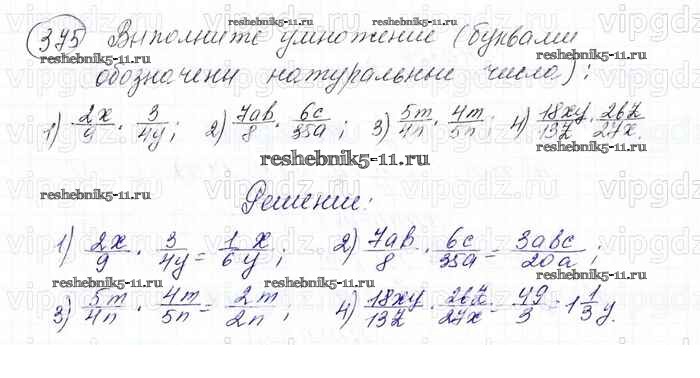 375 Выполните умножение (буквами
обозначены натуральные числа):
1) 2x/9 · 3/4y; 2) 7ab/8 · 6c/35a; 3) 5m/4n · 4m/5n; 4) 18xy/13z · 26z/27x.
reshebnik5-11.ru
Решение:
1) 2x/9 · 3/4y = 1x/6y; 2) 7ab/8 · 6c/35a = 3abc/20a;
3) 5m/4n · 4m/5n = 2m/2n; 4) 18xy/13z · 26z/27x = 4y/3 = 1 1/3 y.